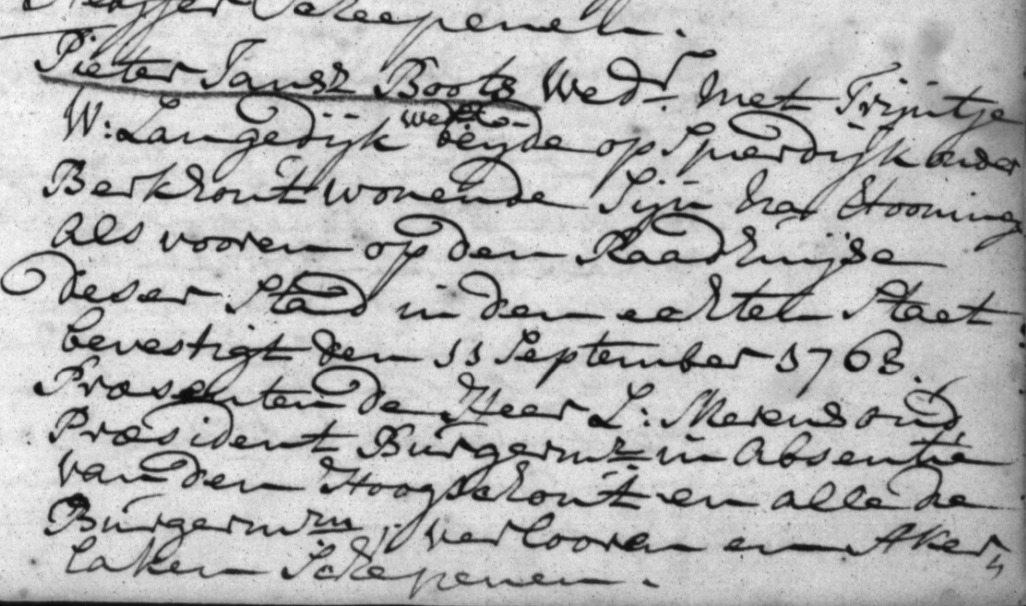 Schepenen.
Pieter Jansz Boots Wedr. met Trijntje
W: Langedijk wede. beijde op Spierdijk onder
Berkhout wonende Sijn na
als vooren op den Raadhuijse
deser Stad in den echten Staet
bevestigt den 11 September 1768.
Præsenten de Heer L: Merens oud
Præsident Burgermr in absentie
van den Hoogschout en alle de
Burgermrn, verlooren en Aker,
laken Schepenen.